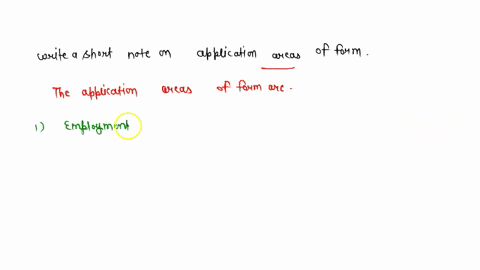 write a short note on application areas of form.
The application areas of form are.
1) Employment